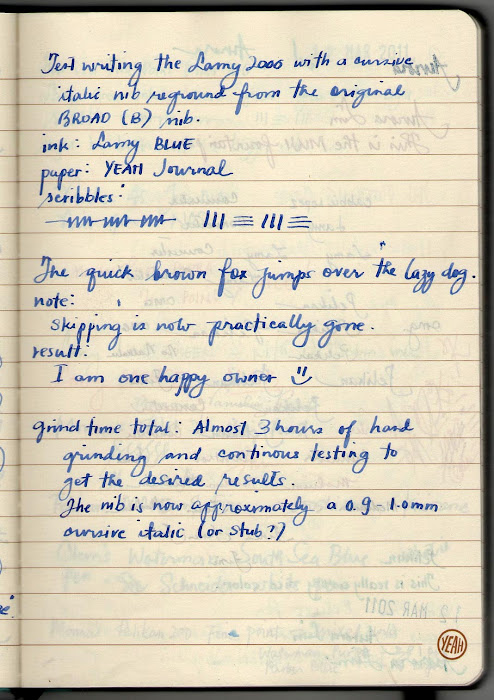 Test writing the Lamy 2000 with a cursive
italic nib reground from the original
BROAD (B) nib.
ink: Lamy BLUE
paper: YEAH Journal
scribbles:
The quick brown fox jumps over "the lazy dog.
note:
skipping is now practically gone.
result:
I am one happy owner
grind time total: Almost 3 hours of hard
grinding and continous testing to
get the desired results.
The nib is now approximately a 0.9 1.0mm
cursive italic (or stub?)
12 MAR 2011
YEAH